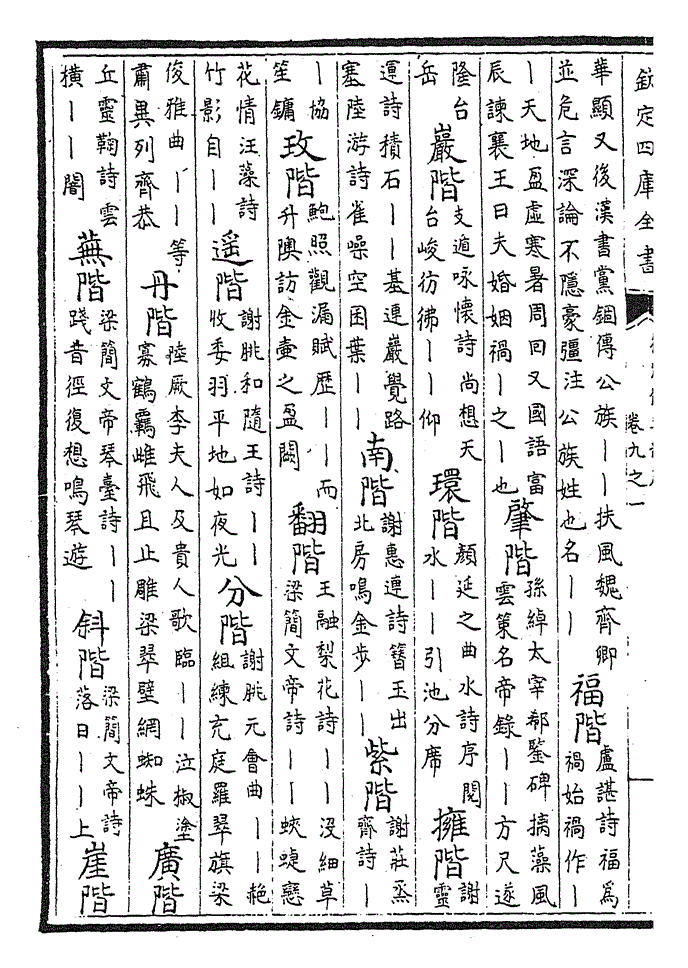 欽定四庫全書
卷九之一
華顯又後漢書黨錮傳公族丨丨扶風魏齊卿
並危言深論不隱豪彊注公族姓也名丨丨
福階
盧諶詩福為
禍始禍作丨
丨天地盈虛寒暑周回又國語富
辰諫襄王曰夫婚姻禍丨之丨也
肇階
孫綽太宰郗鑒碑摛藻風
雲策名帝錄丨丨方尺遂
隆台
岳
巖階
支遁咏懷詩尚想天
台峻彷彿丨丨仰
環階
顏延之曲水詩序閱
水丨丨引池分席
擁階
謝
靈
運詩積石丨丨基連巖覺路
塞陸游詩雀噪空囷葉丨丨
南階
謝惠連詩簪玉出
北房鳴金步丨丨
紫階
謝莊烝
齋詩丨
丨協
笙鏞
玫階
鮑照觀漏賦歷丨丨而
升隩訪金壷之盈闕
翻階
王融梨花詩丨丨没細草
梁簡文帝詩丨丨蛺蝶戀
花情汪藻詩
竹影自丨丨
遥階
謝朓和隨王詩丨丨
收委羽平地如夜光
分階
謝朓元會曲丨丨艴
組練充庭羅翠旗梁
俊雅曲丨丨等
肅異列齊恭
丹階
陸厥李夫人及貴人歌臨丨丨泣椒塗
寡鶴羈雌飛且止雕梁翠壁網蜘蛛
廣階
丘靈鞠詩雲
横丨丨闇
蕪階
梁簡文帝琴臺詩丨丨
踐昔徑復想鳴琴遊
斜階
梁簡文帝詩
落日丨丨上
崖階